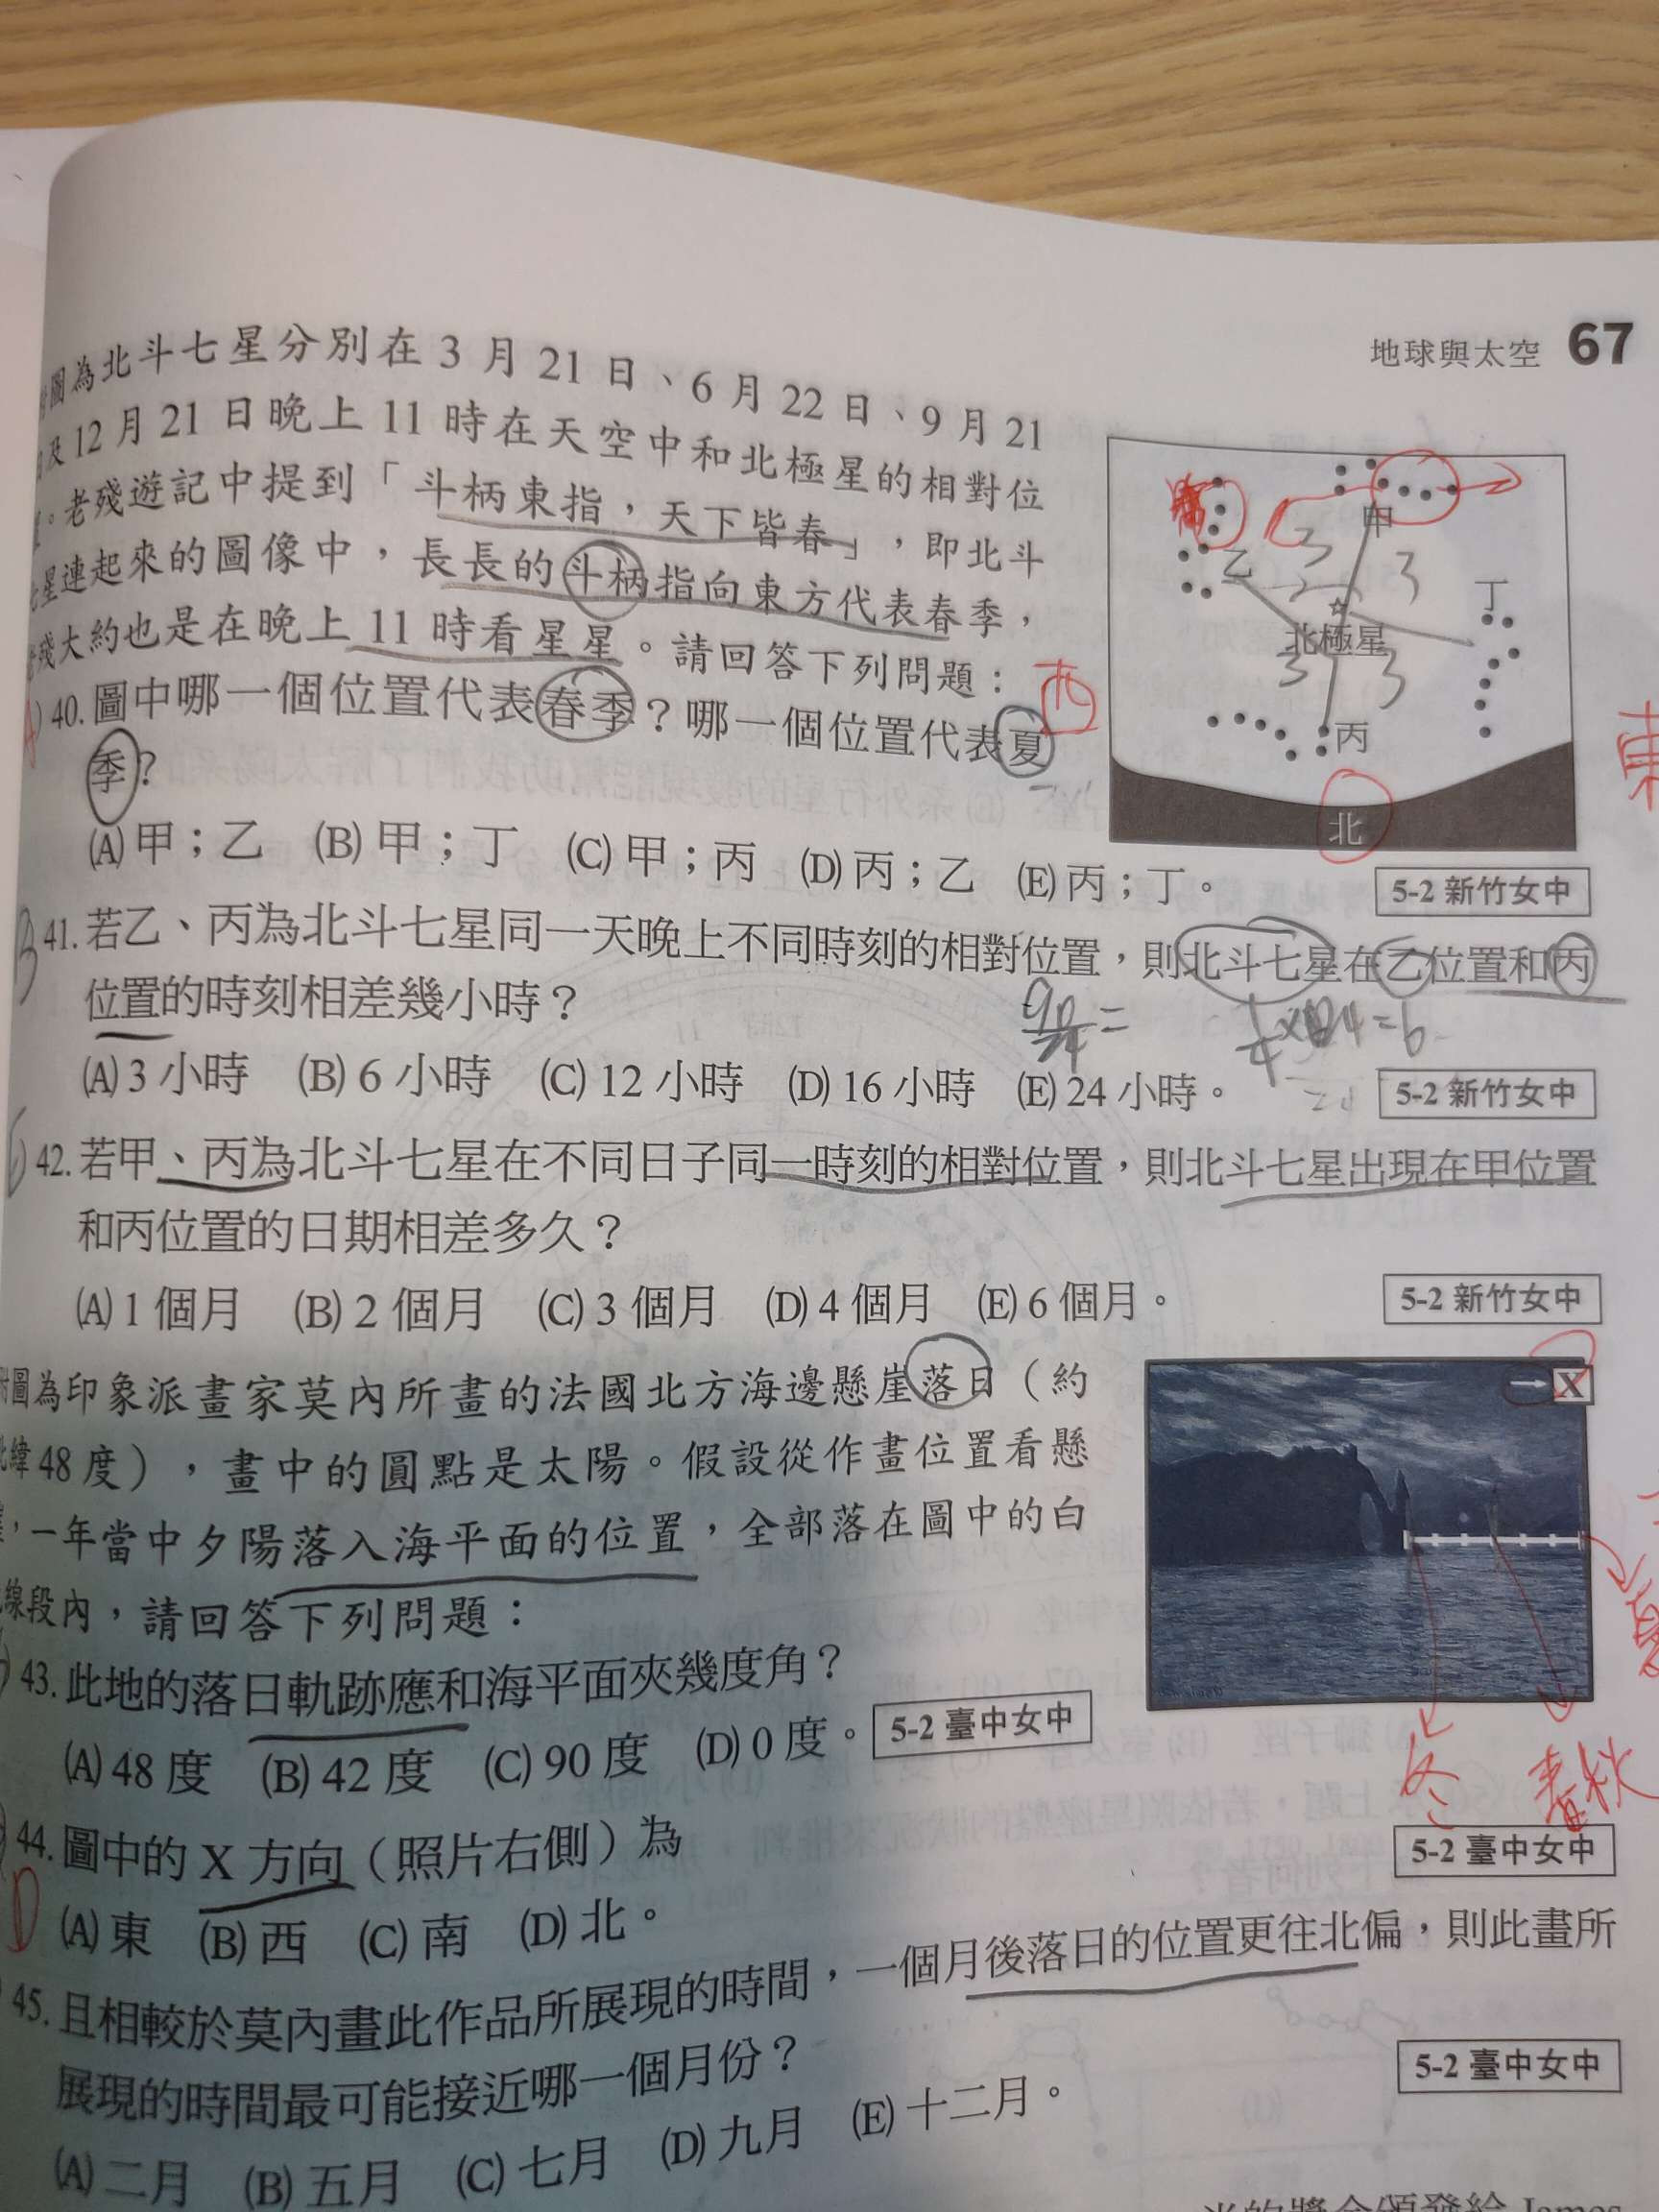 地球與太空 67
圖為北斗七星分別在 3 月 21 日、6 月 22 日、9 月 21
及 12 月 21 日晚上 11 時在天空中和北極星的相對位
。老殘遊記中提到「斗柄東指，天下皆春」，即北斗
星連起來的圖像中，長長的斗柄指向東方代表春季，
殘大約也是在晚上 11 時看星星。請回答下列問題：
甲
乙
丁
北極星
丙
北
3
3
3
3
西
東
40. 圖中哪一個位置代表春季？哪一個位置代表夏
季？
(A) 甲；乙 (B) 甲；丁 (C) 甲；丙 (D) 丙；乙 (E) 丙；丁。
5-2 新竹女中
B
41. 若乙、丙為北斗七星同一天晚上不同時刻的相對位置，則北斗七星在乙位置和丙
位置的時刻相差幾小時？
(A) 3 小時 (B) 6 小時 (C) 12 小時 (D) 16 小時 (E) 24 小時。
5-2 新竹女中
42. 若甲、丙為北斗七星在不同日子同一時刻的相對位置，則北斗七星出現在甲位置
和丙位置的日期相差多久？
(A) 1 個月 (B) 2 個月 (C) 3 個月 (D) 4 個月 (E) 6 個月。
5-2 新竹女中
附圖為印象派畫家莫內所畫的法國北方海邊懸崖落日（約
北緯 48 度），畫中的圓點是太陽。假設從作畫位置看懸
，一年當中夕陽落入海平面的位置，全部落在圖中的白
線段內，請回答下列問題：
→ X
冬
春秋
43. 此地的落日軌跡應和海平面夾幾度角？
(A) 48 度 (B) 42 度 (C) 90 度 (D) 0 度。
5-2 臺中女中
44. 圖中的 X 方向（照片右側）為
5-2 臺中女中
D
(A) 東 (B) 西 (C) 南 (D) 北。
45. 且相較於莫內畫此作品所展現的時間，一個月後落日的位置更往北偏，則此畫所
展現的時間最可能接近哪一個月份？
5-2 臺中女中
(A) 二月 (B) 五月 (C) 七月 (D) 九月 (E) 十二月。